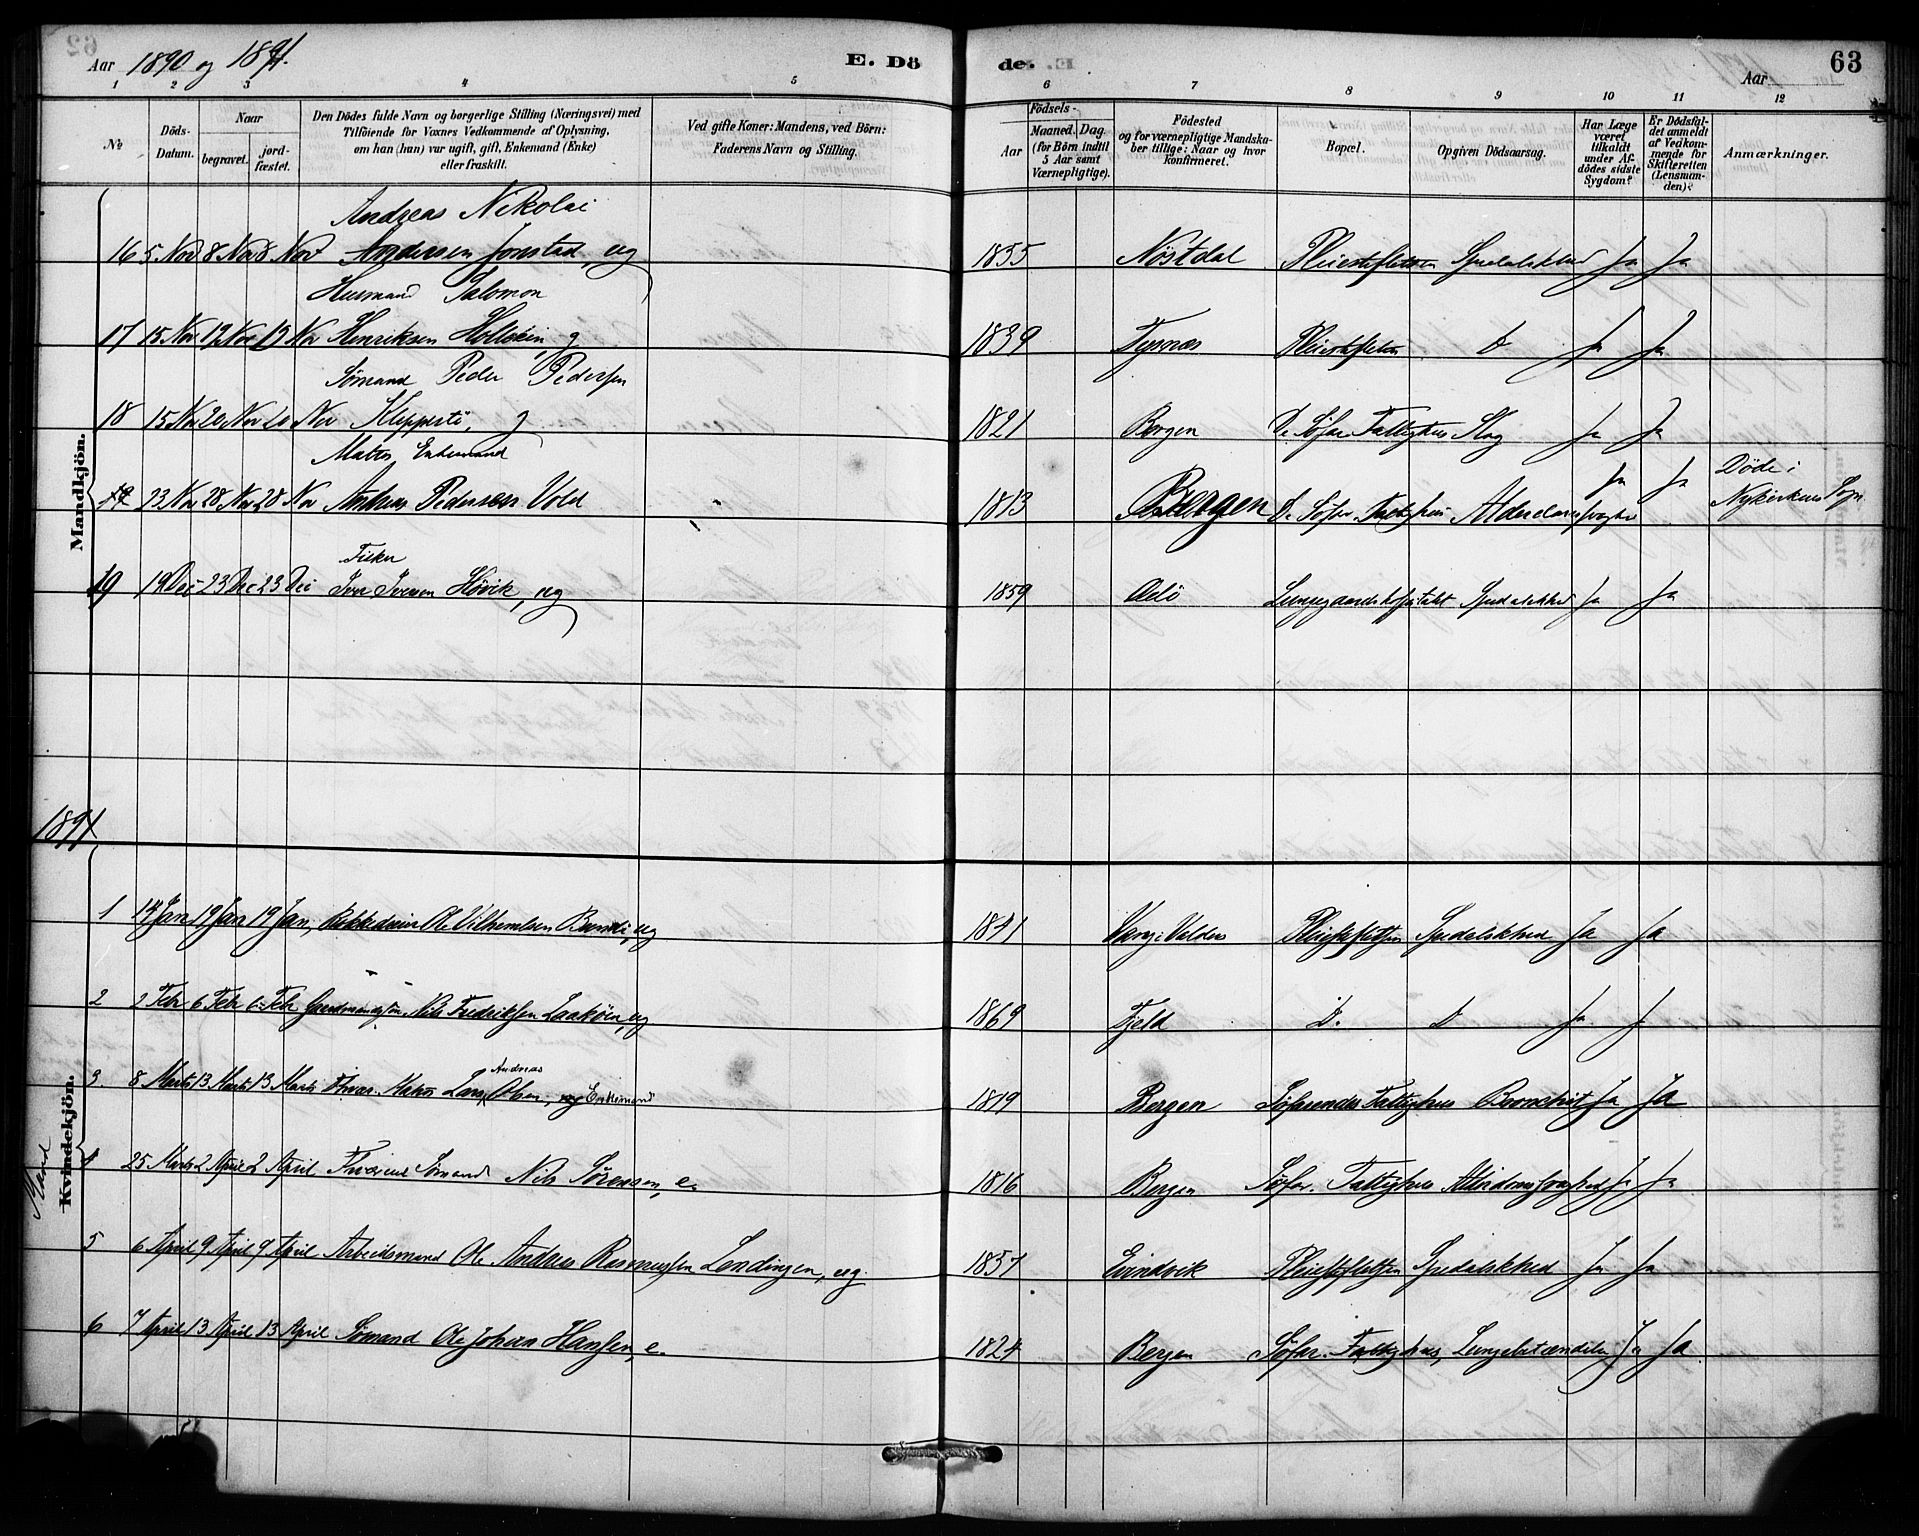 Aar 1890 og 1891. E. Dö
de. 63
Aar
1 2 3 4 5 6 7 8 9 10 11 12
№ Döds-Datum. Naar begravet. jordfæstet. Den Dödes fulde Navn og borgerlige Stilling (Næringsvei) med Tilföiende for Voxnes Vedkommende af Oplysning, om han (hun) var ugift, gift, Enkemand (Enke) eller fraskilt. Ved gifte Koner: Mandens, ved Börn: Faderens Navn og Stilling.
Födsels- Aar Maaned. Dag. (for Börn indtil 5 Aar samt Værnepligtige). Födested og for værnepligtige Mandskaber tillige: Naar og hvor Konfirmeret. Bopæl. Opgiven Dödsaarsag. Har Læge været tilkaldt under Afdödes sidste Sygdom? Er Dödsfaldet anmeldt af Vedkommende for Skifteretten (Lensmanden)? Anmærkninger.
Mandkjön.
Andreas Nikolai
16 5 Nov 8 Nov 8 Nov Andersen Jonstad, ug 1855 Nöstdal Pleiestiftelsen Spedalskhed Ja Ja
Husmand Salomon
17 15 Nov 19 Nov 19 Nov Henriksen g 1839 Tysnæs Pleiestiftelsen D Ja Ja
Sömand Peder Pedersen
18 15 Nov 20 Nov 20 Nov Kleppestö, g 1821 Bergen D. Söfar. Fattighus Slag Ja Ja
Matros Enkemand
19 23 Nov 28 Nov 28 Nov Andreas Pedersen Vold 1813 Bergen D. Söfar. Fattighus Alderdomssvaghed Ja Ja Döde i Nykirkens Sogn
Fisker
19 19 Dec 23 Dec 23 Dec Iver Iversen Hövik, ug 1859 Lungegaardshospitalet Spedalskhed Ja Ja
1891
Mand
Kvindekjön.
1 14 Jan 19 Jan 19 Jan, Ole Vilhemlsen ug 1841 Vang i Valders Pleiestiftelsen Spedalskhed Ja Ja
2 2 Febr 6 Febr 6 Febr Gaardmandssön Nils Fredriksen ug 1869 Fjeld D. D Ja Ja
Andreas
3. 8 Marts 13 Marts 13 Marts Lars Olsen, ug Enkemand 1819 Bergen Söfarendes Fattighus Bronchit Ja Ja
4 25 Marts 2 April 2 April Sömand Nils Sörensen, e. 1816 Bergen Söfar. Fattighus Alderdomssvaghed Ja Ja
5 6 April 9 April 9 April Arbeidsmand Ole Andreas Rasmussen Lendingen, ug. 1857 Evindvik Pleiestiftelsen Spedalskhed Ja Ja
6 7 April 13 April 13 April Sömand Ole Johan Hansen, e. 1824 Bergen Söfar. Fattighus, Lungebetændelse Ja Ja